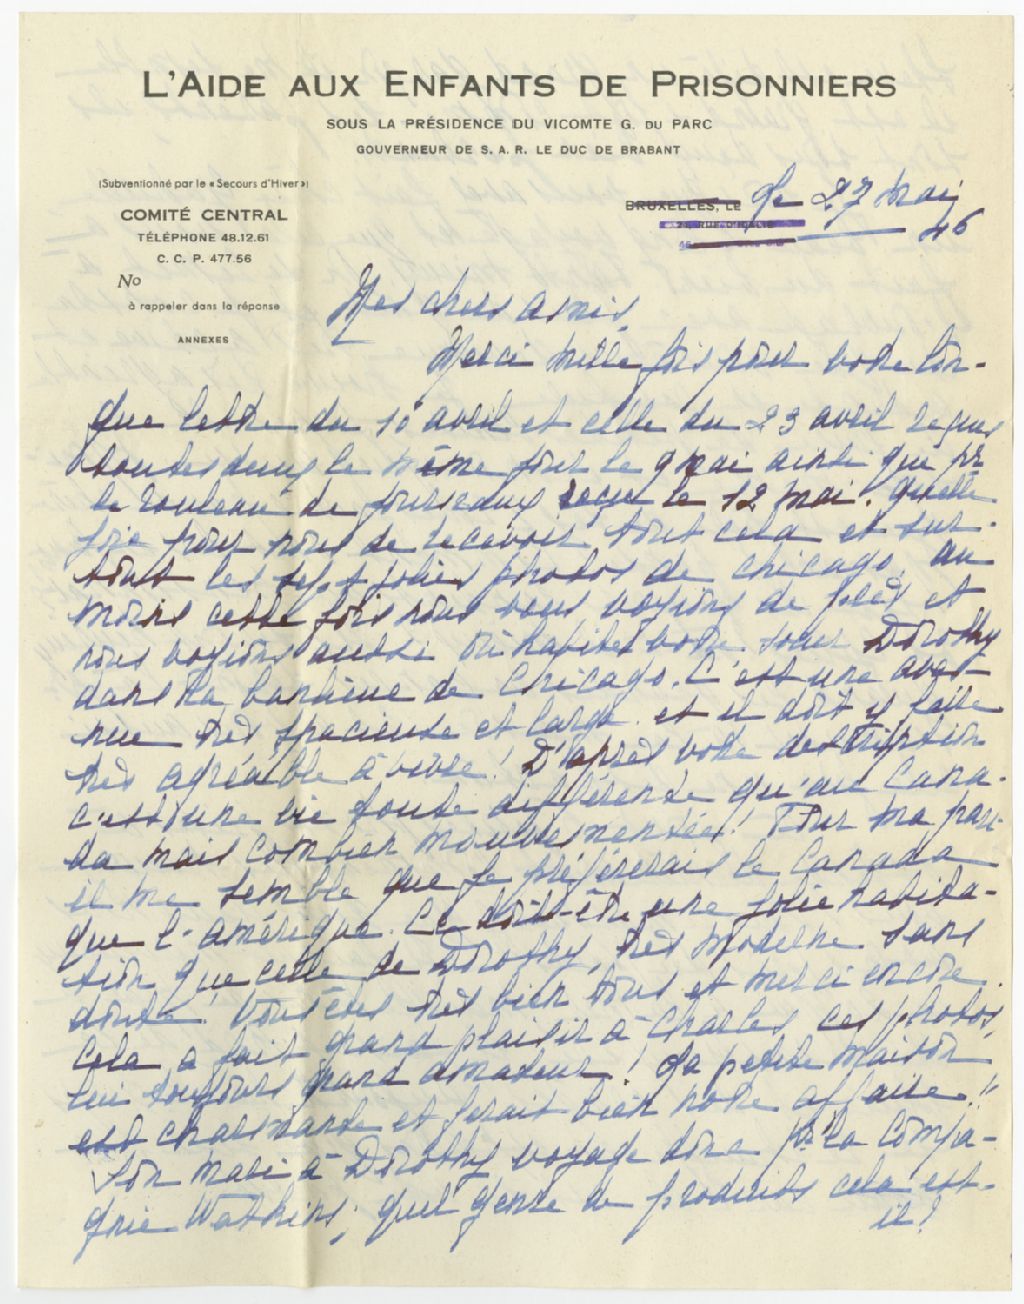 L'AIDE AUX ENFANTS DE PRISONNIERS
SOUS LA PRÉSIDENCE DU VICOMTE G. DU PARC
GOUVERNEUR DE S. A. R. LE DUC DE BRABANT
(Subventionné par le « Secours d'Hiver »)
COMITÉ CENTRAL
TÉLÉPHONE 48.12.61
C. C. P. 477.56
No
à rappeler dans la réponse
ANNEXES
BRUXELLES, LE Le 27 mai
46
Mes chers amis,
Merci mille fois pour votre lon-
gue lettre du 10 avril et celle du 23 avril reçues
toutes deux le même jour le 9 mai ainsi que pr
le rouleau de journaux reçu le 12 mai. Quelle
joie pour nous de recevoir tout cela et sur-
tout les sept jolies photos de chicago, au
moins cette fois nous vous voyions de près et
nous voyions aussi où habite votre soeur Dorothy
dans la banlieue de Chicago. C'est une ave-
nue très spacieuse et large et il doit y faire
très agréable à vivre! D'après votre description
c'est une vie toute différente qu'au Cana-
da mais combien mouvementée! Pour ma part
il me semble que je préférerais le Canada
que l'amérique. Ce doit-être une jolie habita-
tion que celle de Dorothy, très moderne sans
doute. Vous êtes très bien tous et merci encore
cela a fait grand plaisir à Charles, ces photos,
lui toujours grand amateur! La petite maison
est charmante et ferait bien notre affaire!!
Son mari à Dorothy voyage donc pr la Compa-
gnie Watkins; quel genre de produits cela est-
il?